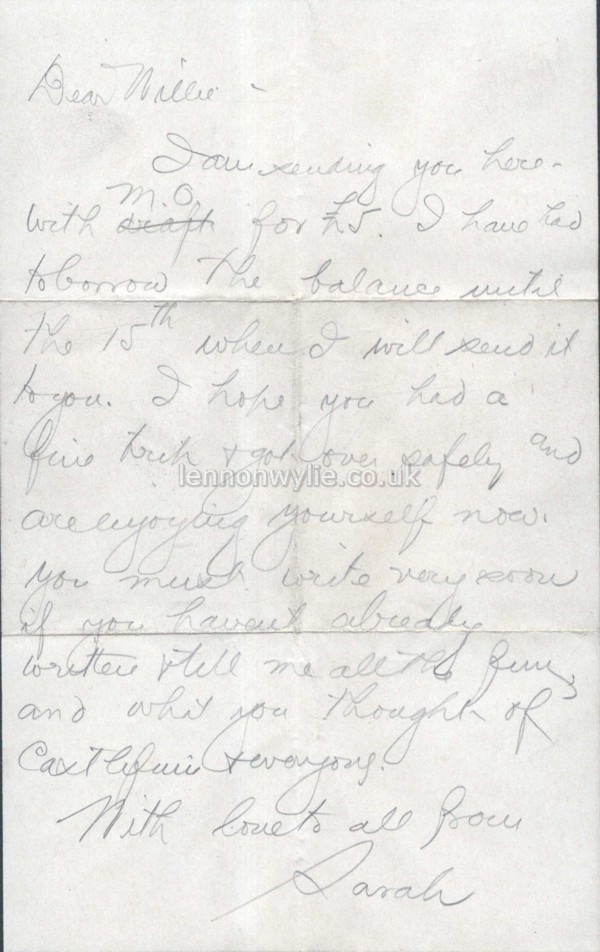 Dear Willie -
I am sending you here-
M.O.
with draft for £5. I have had
to borrow the balance until
the 15th when I will send it
to you. I hope you had a
fine trip & got over safely and
lennonwylie.co.uk
are enjoying yourself now.
You must write very soon
if you havent already
written & tell me all the fun,
and what you thought of
Castlefinn & everyone.
With love to all from
Sarah